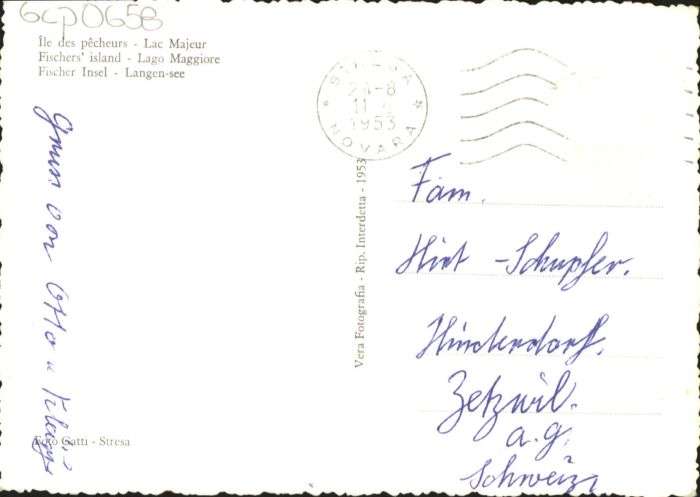 6cp0658
Île des pêcheurs - Lac Majeur
Fischers' island - Lago Maggiore
Fischer Insel - Langen-see
STRESA
24-8
11
1953
NOVARA
Vera Fotografia - Rip. Interdetta - 1953
von Otto u
Foto Gatti - Stresa
Fam.
Hirt - Schupfer.
Hinterdorf.
Zetzwil.
a.g.
Schweiz